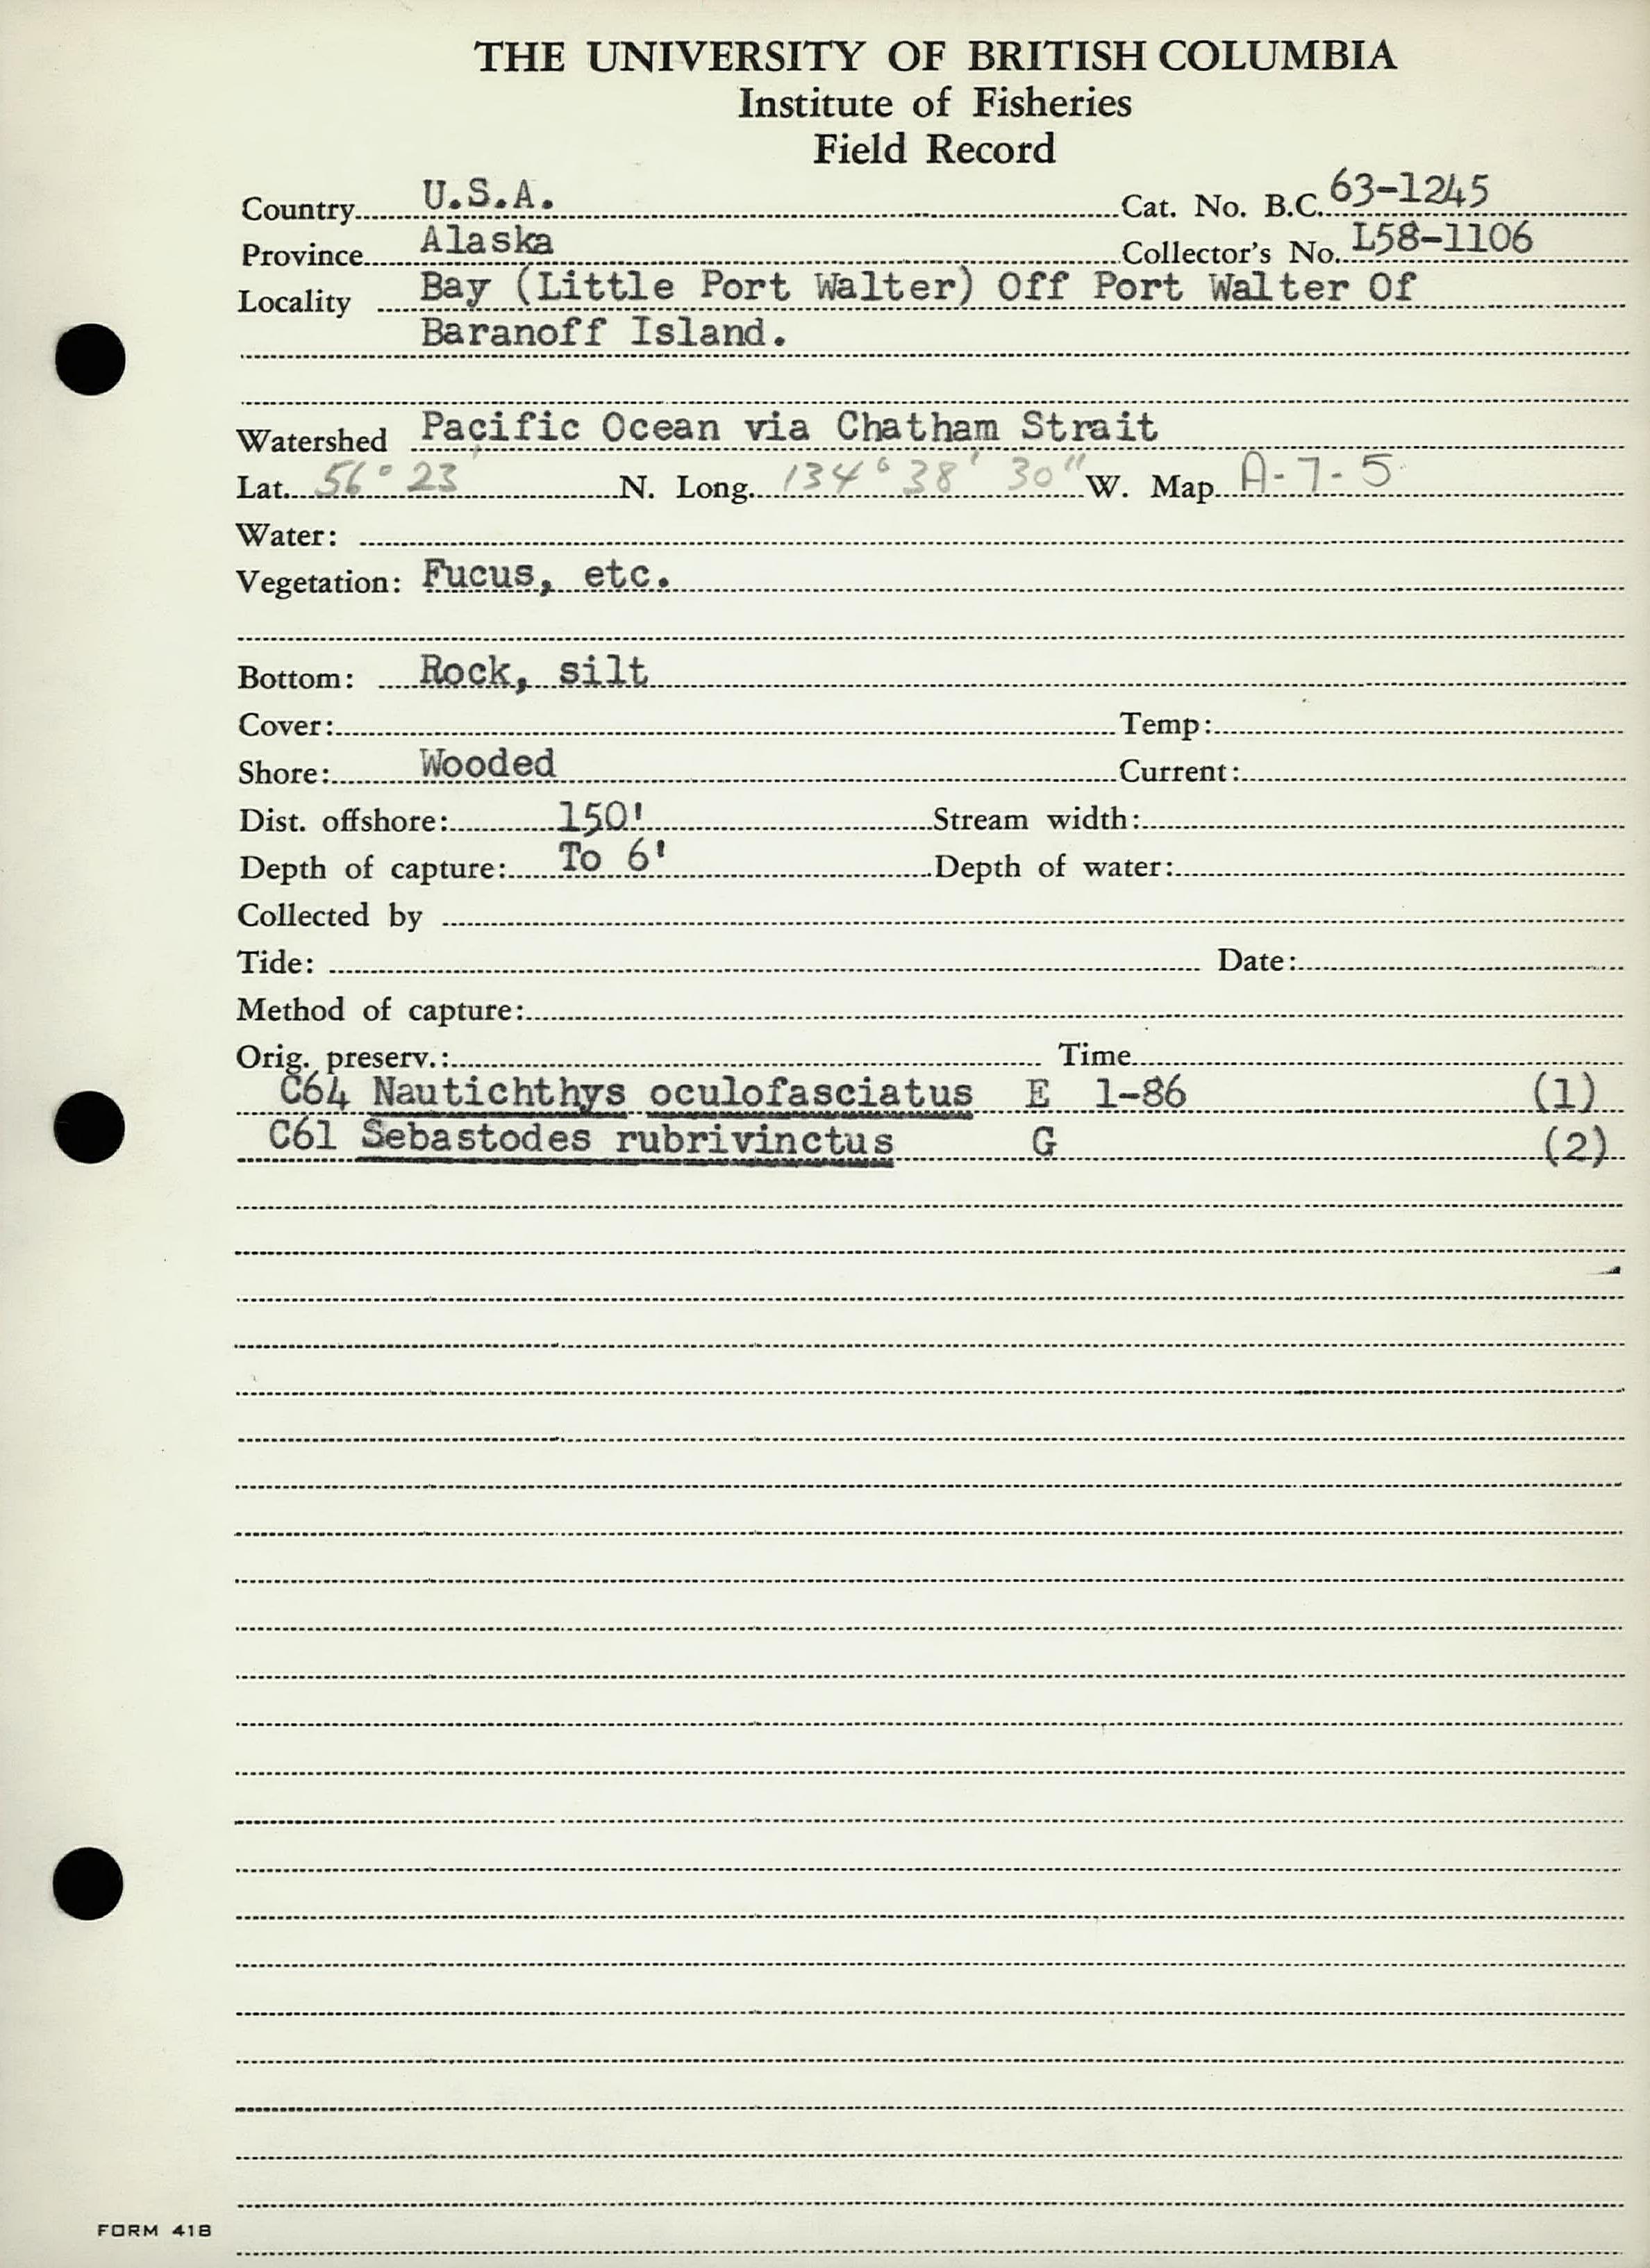 THE UNIVERSITY OF BRITISH COLUMBIA
Institute of Fisheries
Field Record
Country U.S.A. Cat. No. B.C. 63-1245
Province Alaska Collector's No. L58-1106
Locality Bay (Little Port Walter) Off Port Walter Of
Baranoff Island.
Watershed Pacific Ocean via Chatham Strait
Lat. 56° 23' N. Long. 134° 38' 30" W. Map A-7-5
Water:
Vegetation: Fucus, etc.
Bottom: Rock, silt
Cover: Temp:
Shore: Wooded Current:
Dist. offshore: 150' Stream width:
Depth of capture: To 6' Depth of water:
Collected by
Tide: Date:
Method of capture:
Orig. preserv.: Time
C64 Nautichthys oculofasciatus E 1-86 (1)
C61 Sebastodes rubrivinctus G (2)
FORM 41B